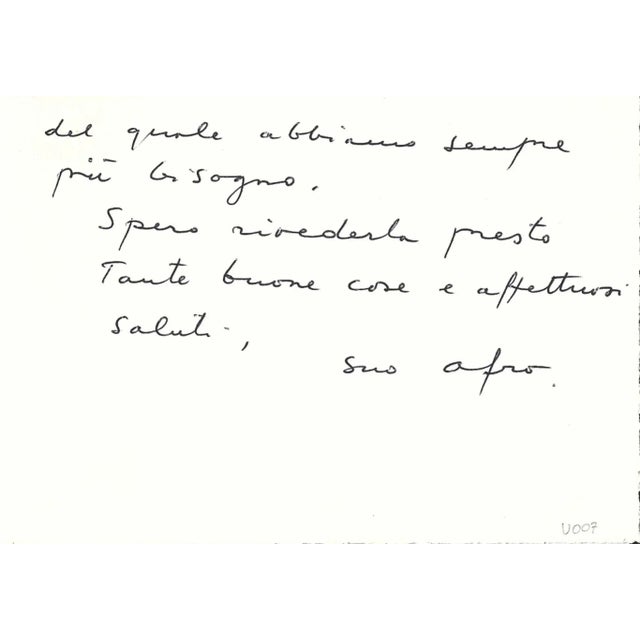 del quale abbiamo sempre
più bisogno.
Spero rivederla presto
Tante buone cose e affettuosi
saluti,
suo afro.
U007